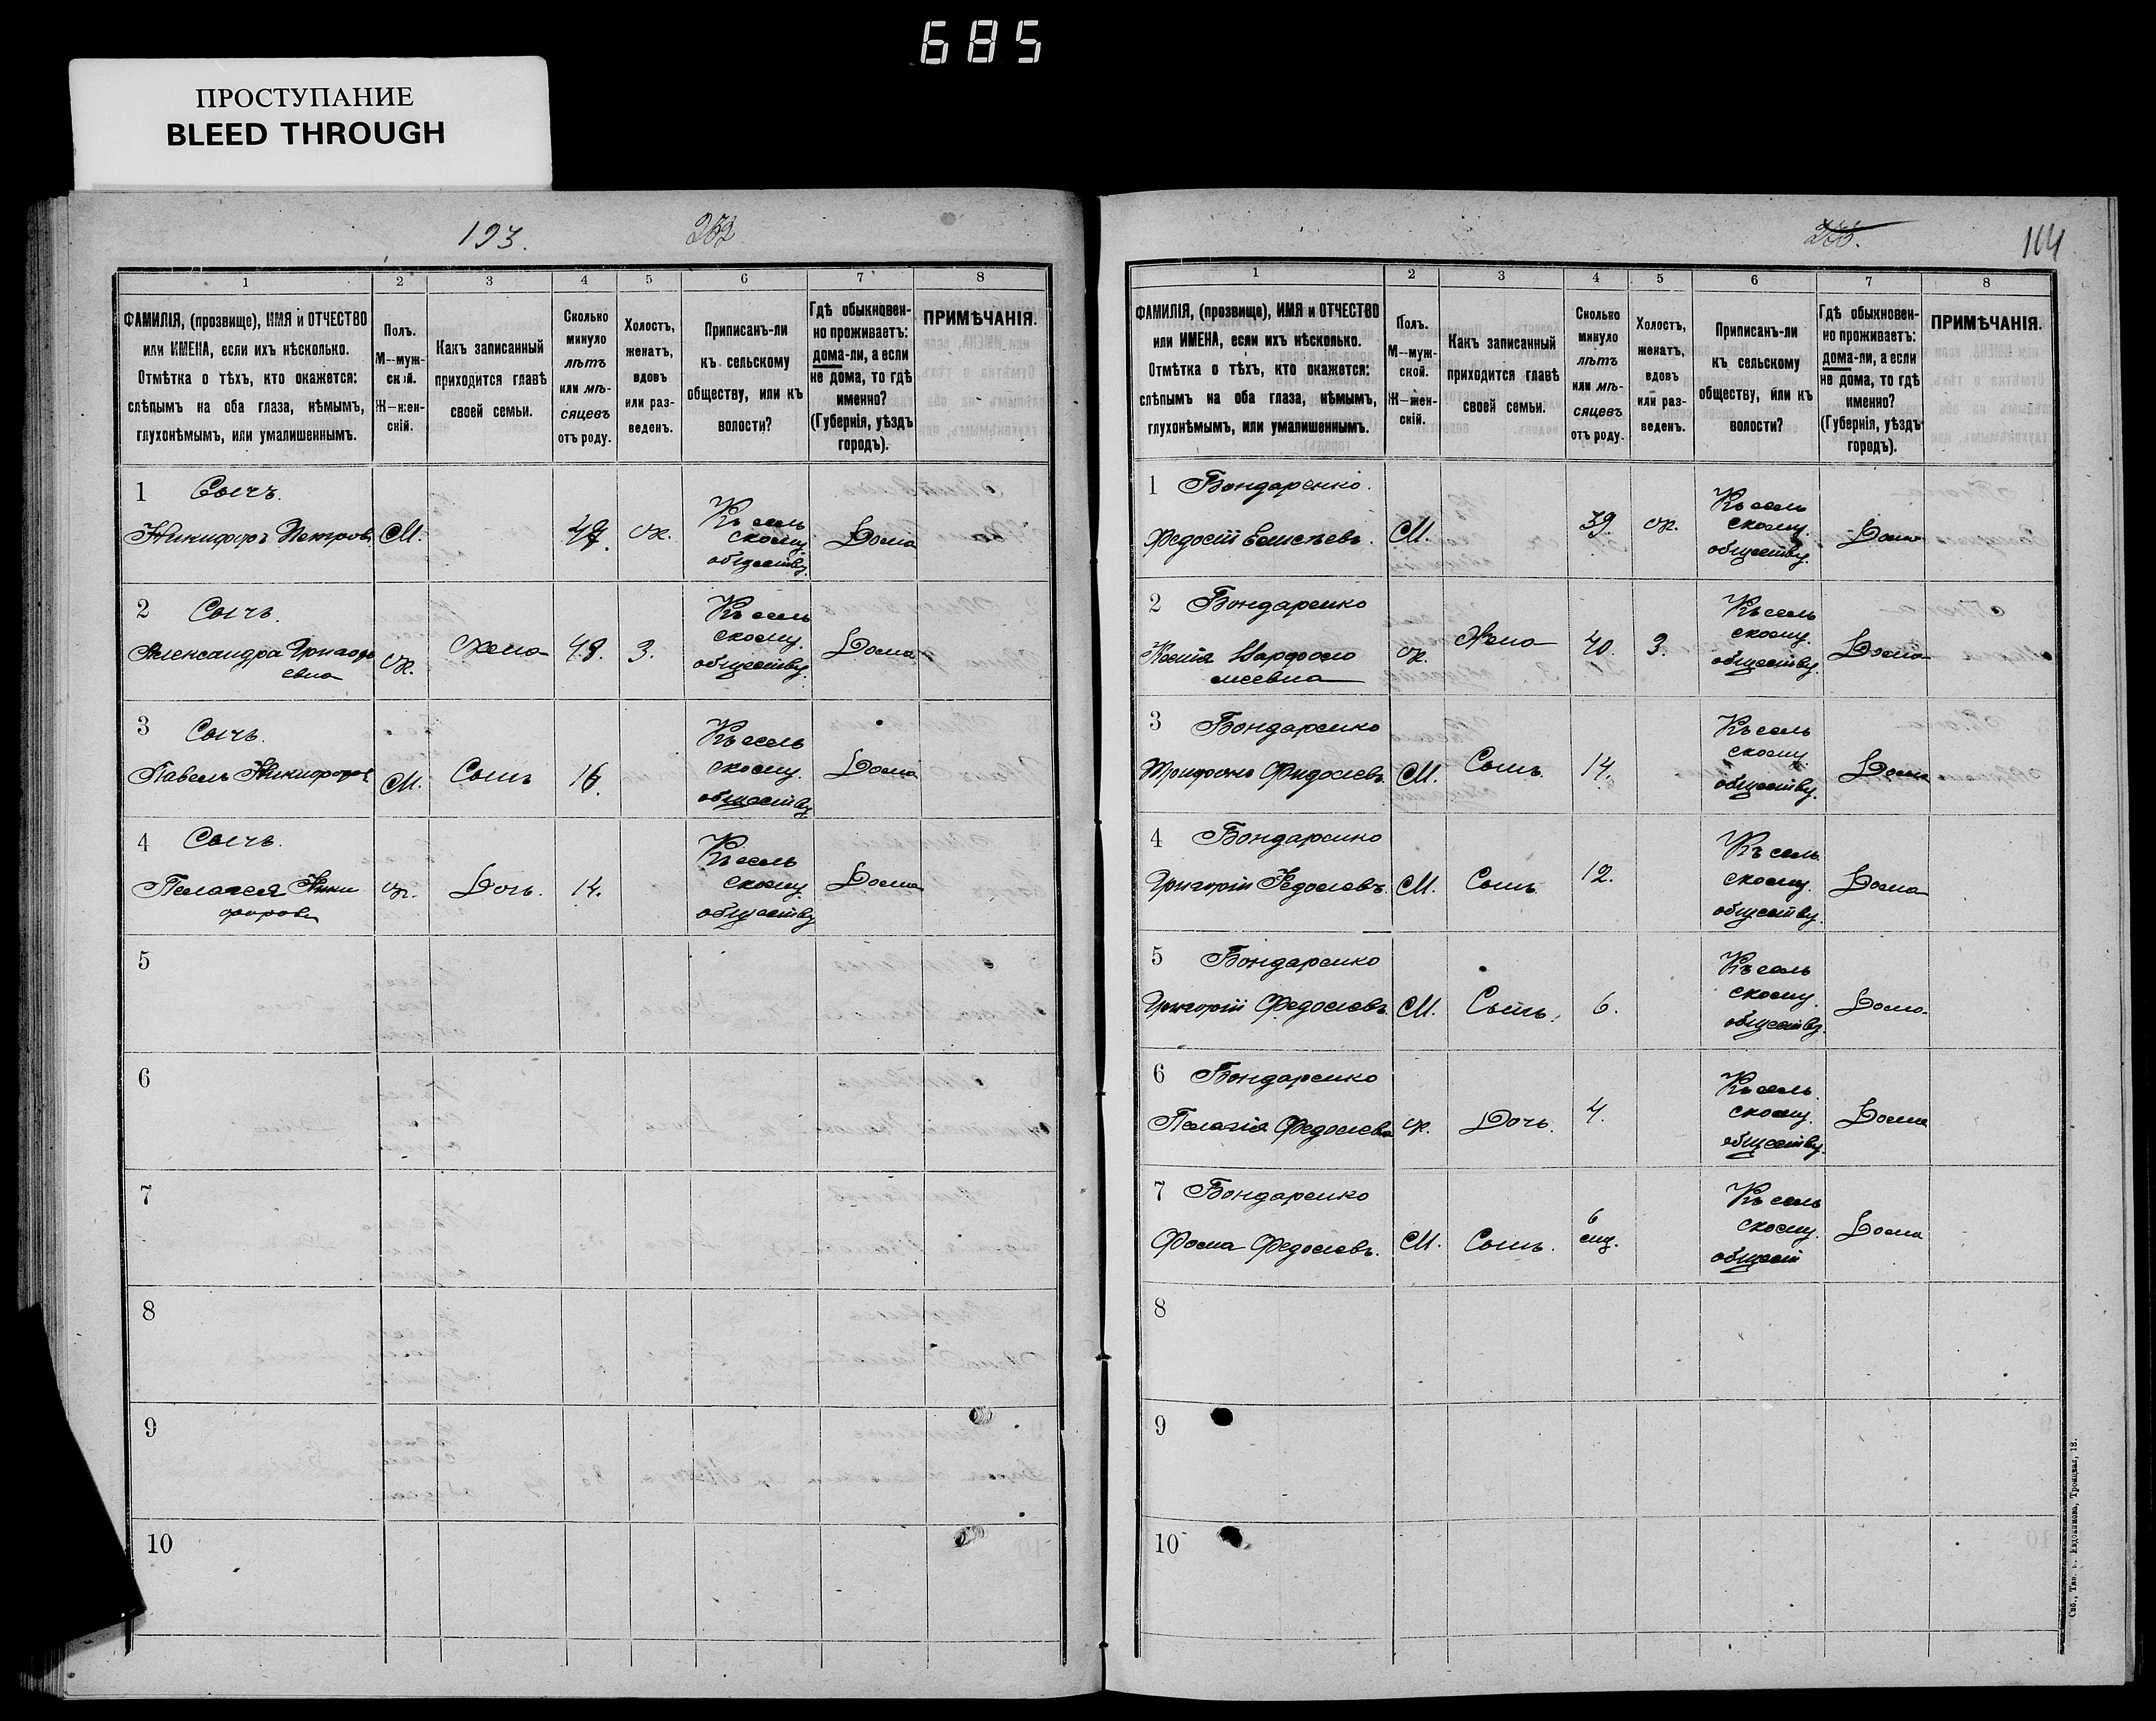 685
ПРОСТУПАНИЕ
BLEED THROUGH
193.
1 2 3 4 5 6 7 8
ФАМИЛІЯ, (прозвище), ИМЯ и ОТЧЕСТВО
или ИМЕНА, если ихъ нѣсколько.
Отмѣтка о тѣхъ, кто окажется:
слѣпымъ на оба глаза, нѣмымъ,
глухонѣмымъ, или умалишеннымъ.
Полъ.
М—муж-
ской.
Ж—жен-
скій.
Какъ записанный
приходится главѣ
своей семьи.
Сколько
минуло
лѣтъ
или мѣ-
сяцевъ
отъ роду.
Холостъ,
женатъ,
вдовъ
или раз-
веденъ.
Приписанъ-ли
къ сельскому
обществу, или къ
волости?
Гдѣ обыкновен-
но проживаетъ:
дома-ли, а если
не дома, то гдѣ
именно?
(Губернія, уѣздъ
городъ).
ПРИМѢЧАНІЯ.
1 Сычъ.
Никифоръ Петровъ М. ж. Къ сель
скому
обществу. Дома
2 Сычъ.
Александра Григорь
евна ж. Жена 48. З. Къ сель
скому.
обществу. Дома
3 Сычъ.
Павелъ Никифоровъ М. Сынъ 16. Къ сель
скому.
обществу Дома
4 Сычъ.
Пелагея Ники
форова ж. Дочь. 14. Къ сель
скому.
обществу Дома
5
6
7
8
9
10
104
1 2 3 4 5 6 7 8
ФАМИЛІЯ, (прозвище), ИМЯ и ОТЧЕСТВО
или ИМЕНА, если ихъ нѣсколько.
Отмѣтка о тѣхъ, кто окажется:
слѣпымъ на оба глаза, нѣмымъ,
глухонѣмымъ, или умалишеннымъ.
Полъ.
М—муж-
ской.
Ж—жен-
скій.
Какъ записанный
приходится главѣ
своей семьи.
Сколько
минуло
лѣтъ
или мѣ-
сяцевъ
отъ роду.
Холостъ,
женатъ,
вдовъ
или раз-
веденъ.
Приписанъ-ли
къ сельскому
обществу, или къ
волости?
Гдѣ обыкновен-
но проживаетъ:
дома-ли, а если
не дома, то гдѣ
именно?
(Губернія, уѣздъ
городъ).
ПРИМѢЧАНІЯ.
1 Бондаренко.
Федосій М. 39. ж. Къ сель
скому.
обществу. Дома
2 Бондаренко
Ксенія Варфоло
меевна ж. Жена 40. З. Къ сель
скому.
обществу. Дома
3 Бондаренко
Трифонъ Федосіевъ М. Сынъ. 14. Къ сель
скому.
обществу. Дома
4 Бондаренко
Григорій Федосіевъ М. Сынъ 12. Къ сель
скому.
обществу. Дома
5 Бондаренко
Григорій Федосіевъ М. Сынъ. 6. Къ сель
скому.
обществу. Дома
6 Бондаренко
Пелагія Федосіева ж. Дочь. 4. Къ сель
скому.
обществу. Дома
7 Бондаренко
Фома Федосіевъ. М. Сынъ. 6 мц. Къ сель
скому.
общест Дома
8
9
10
Спб., Тип. Евдокимова, Троицкая, 18.